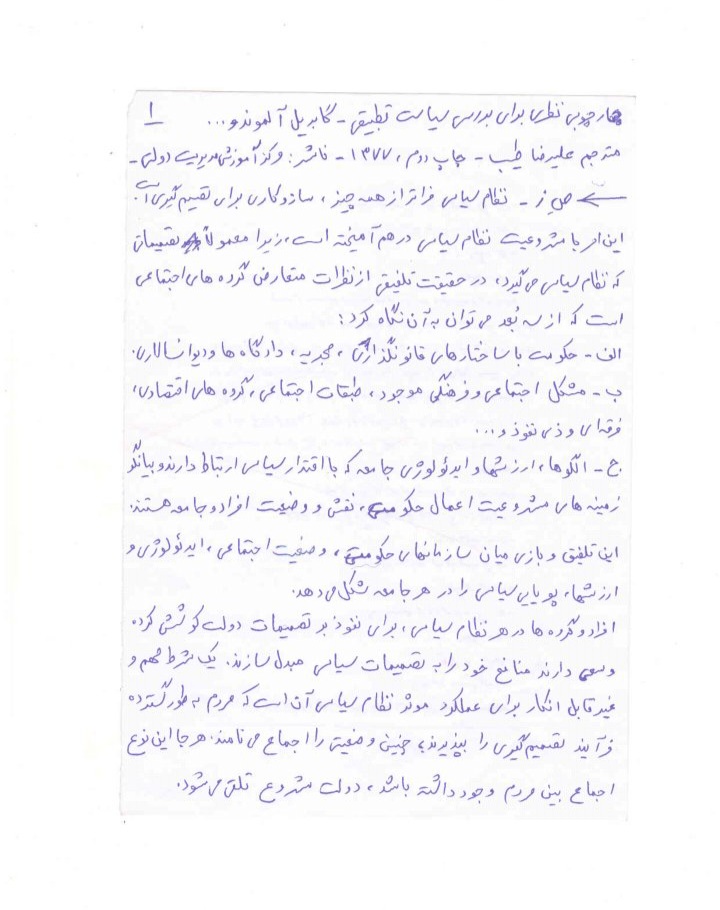 چارچوبی نظری برای بررسی سیاست تطبیقی - گابریل آلموند و... ۱
مترجم علیرضا طیب - چاپ دوم، ۱۳۷۷ - ناشر: مرکز آموزش مدیریت دولتی -
ص ز - نظام سیاسی فراتر از همه چیز، سازوکاری برای تصمیم گیری است.
این امر با مشروعیت نظام سیاسی درهم آمیخته است، زیرا معمولاً تصمیماتی
که نظام سیاسی می گیرد، در حقیقت تلفیقی از نظرات متعارض گروه های اجتماعی
است که از سه بُعد می توان به آن نگاه کرد:
الف - حکومت با ساختارهای قانونگذاری، مجریه، دادگاه ها و دیوانسالاری.
ب - مشکل اجتماعی و فرهنگی موجود، طبقات اجتماعی، گروه های اقتصادی،
فرقه ای و ذی نفوذ و...
ج - الگوها، ارزشها و ایدئولوژی جامعه که با اقتدار سیاسی ارتباط دارند و بیانگر
زمینه های مشروعیت اعمال حکومت، نقش و وضعیت افراد و جامعه هستند.
این تلفیق و بازی میان سازمانهای حکومتی، وضعیت اجتماعی، ایدئولوژی و
ارزشها، پویایی سیاسی را در هر جامعه شکل می دهد.
افراد و گروه ها در هر نظام سیاسی، برای نفوذ بر تصمیمات دولت کوشش کرده
و سعی دارند منافع خود را به تصمیمات سیاسی مبدل سازند. یک شرط مهم و
غیر قابل انکار برای عملکرد موثر نظام سیاسی آن است که مردم به طور گسترده
فرآیند تصمیم گیری را بپذیرند، چنین وضعیتی را اجماع می نامند. هر جا این نوع
اجماع بین مردم وجود داشته باشد، دولت مشروع تلقی می شود.